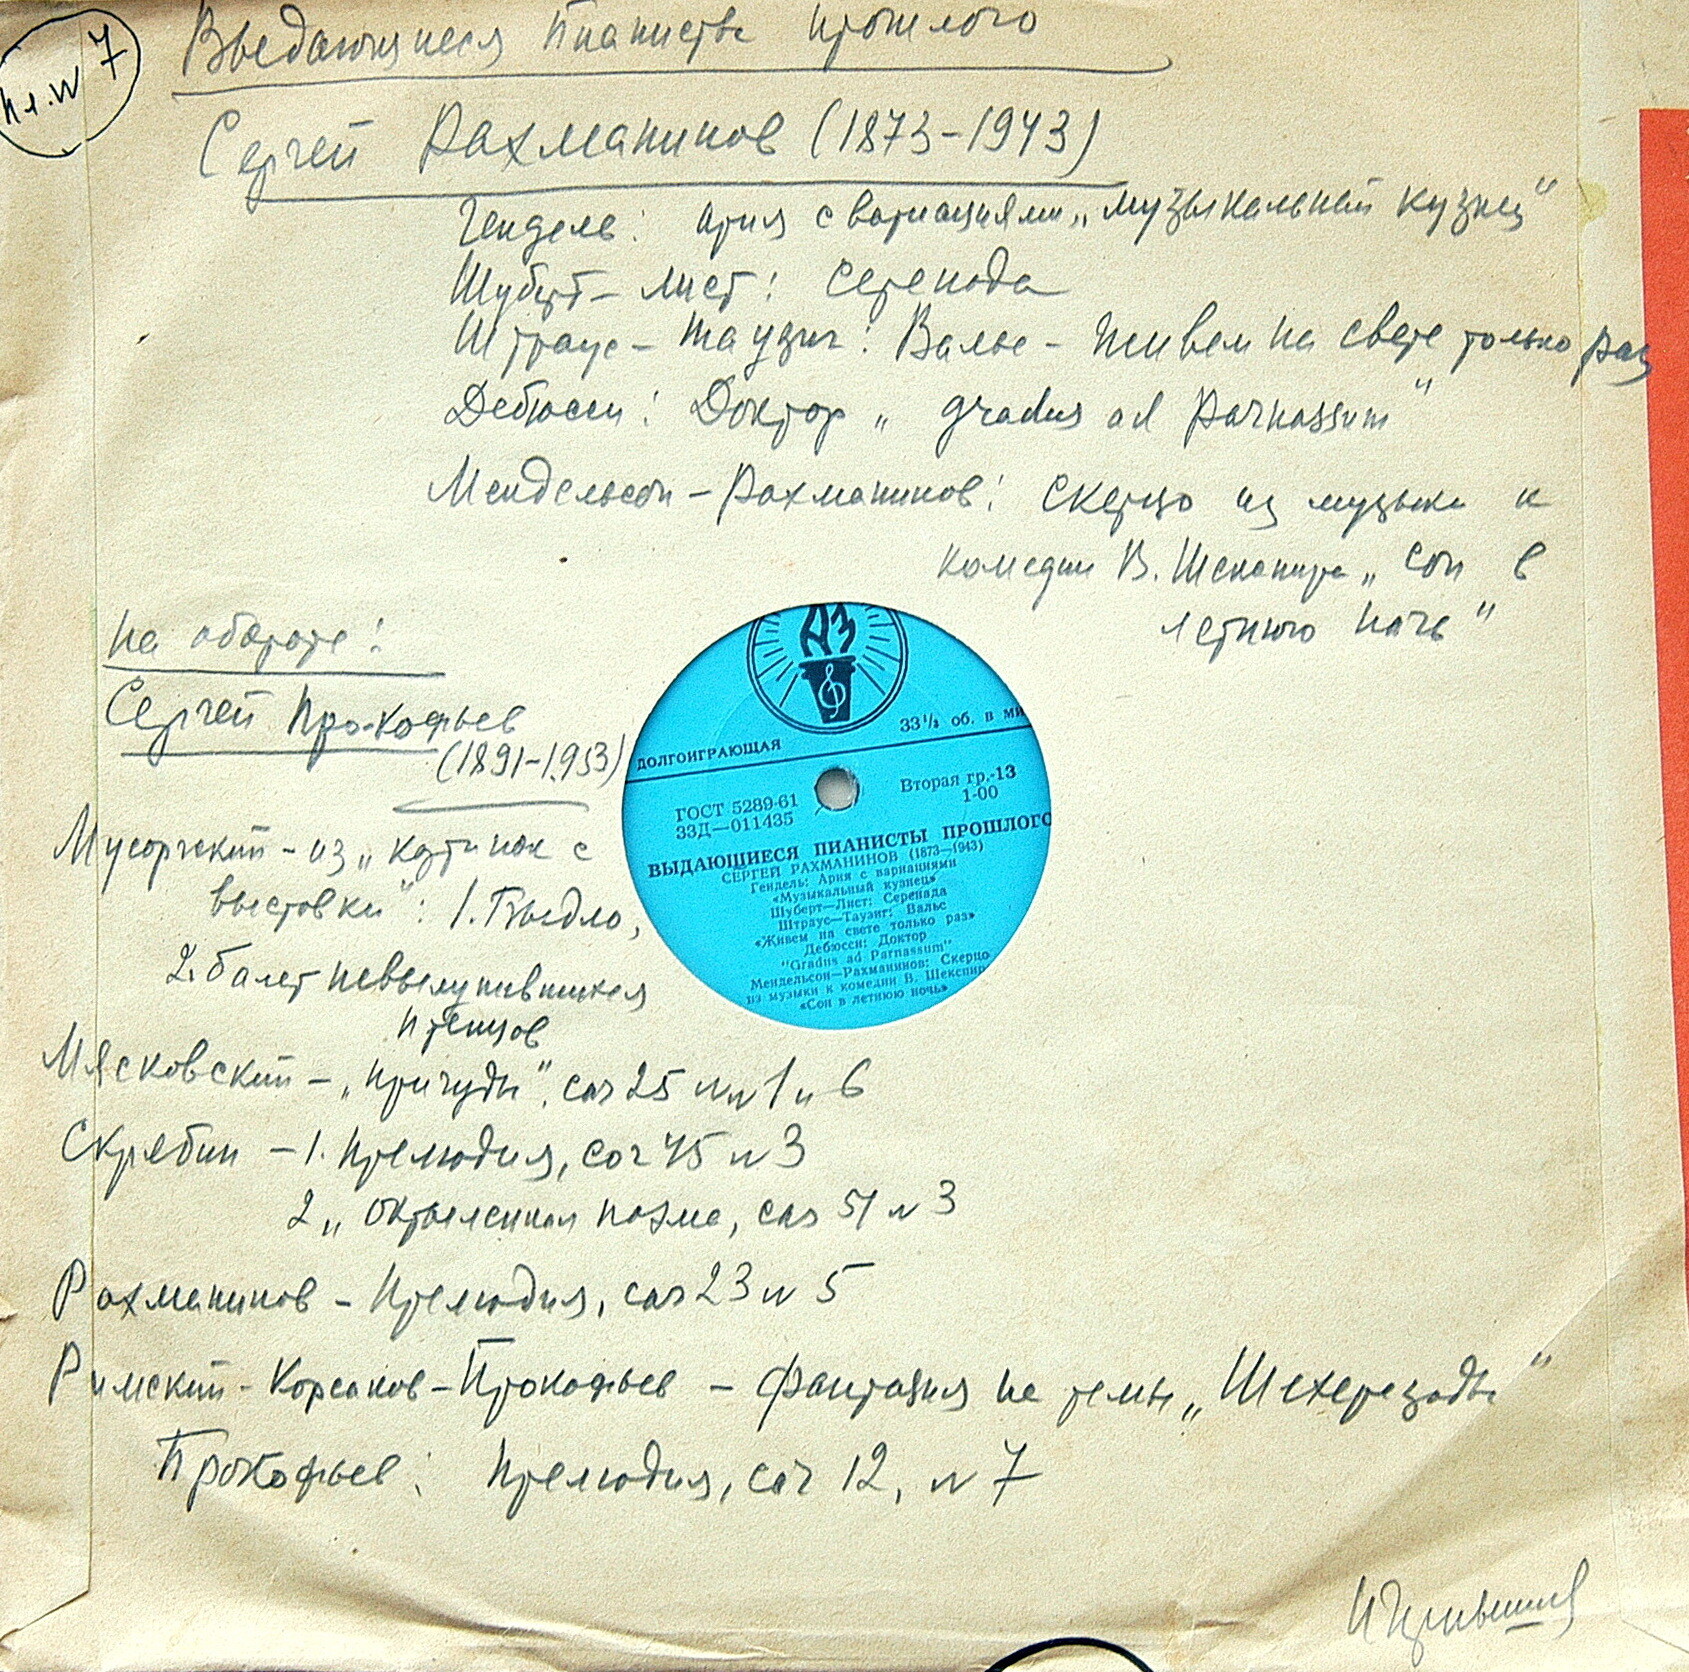 Пл. N 7
Выдающиеся пианисты прошлого
Сергей Рахманинов (1873-1943)
Гендель: Ария с вариациями „Музыкальный кузнец“
Шуберт - Лист: Серенада
Штраус - Таузиг: Вальс - Живем на свете только раз
Дебюсси: Доктор „gradus ad Parnassum“
Мендельсон - Рахманинов: Скерцо из музыки к
комедии В. Шекспира „Сон в
летнюю ночь“
На обороте:
Сергей Прокофьев
(1891-1953)
Мусоргский - из „Картинок с
выставки“: 1. Быдло,
2. Балет невылупившихся
птенцов
Мясковский - „Причуды“, соч 25 NN 1 и 6
Скрябин - 1. Прелюдия, соч 45 N 3
2 „Окрыленная поэма, соч 51 N 3
Рахманинов - Прелюдия, соч 23 N 5
Римский-Корсаков - Прокофьев - Фантазия на темы „Шехеразады“
Прокофьев: Прелюдия, соч 12, N 7
АЗ
ДОЛГОИГРАЮЩАЯ
33⅓ об. в ми
ГОСТ 5289-61
33Д—011435
Вторая гр.-13
1-00
ВЫДАЮЩИЕСЯ ПИАНИСТЫ ПРОШЛОГО
СЕРГЕЙ РАХМАНИНОВ (1873—1943)
Гендель: Ария с вариациями
«Музыкальный кузнец»
Шуберт—Лист: Серенада
Штраус—Таузиг: Вальс
«Живем на свете только раз»
Дебюсси: Доктор
"Gradus ad Parnassum"
Мендельсон-Рахманинов: Скерцо
из музыки к комедии В. Шекспир
«Сон в летнюю ночь»